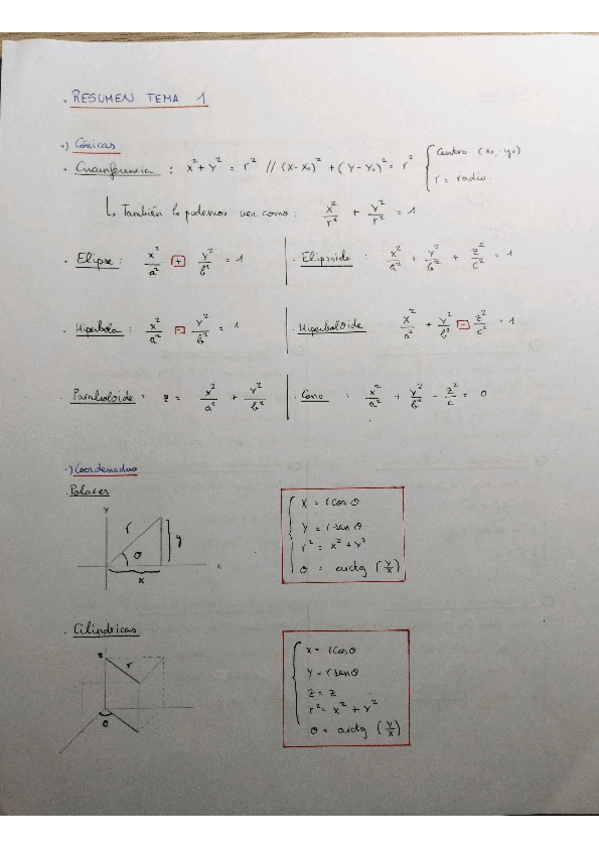 . RESUMEN TEMA 1
•) Cónicas
. Circunferencia : x² + y² = r² // (x-x₀)² + (y-y₀)² = r² { centro (x₀, y₀)
r = radio.
↳ También lo podemos ver como: x²/r² + y²/r² = 1
. Elipse : x²/a² + y²/b² = 1 | . Elipsoide : x²/a² + y²/b² + z²/c² = 1
. Hiperbola : x²/a² - y²/b² = 1 | . Hiperboloide x²/a² + y²/b² - z²/c² = 1
. Paraboloide : z = x²/a² + y²/b² | . Cono : x²/a² + y²/b² - z²/c = 0
•) Coordenadas
. Polares
y r θ y x x
x = r cos θ
y = r sen θ
r² = x² + y²
θ = arctg (y/x)
. Cilíndricas
z r θ
x = r cos θ
y = r sen θ
z = z
r² = x² + y²
θ = arctg (y/x)